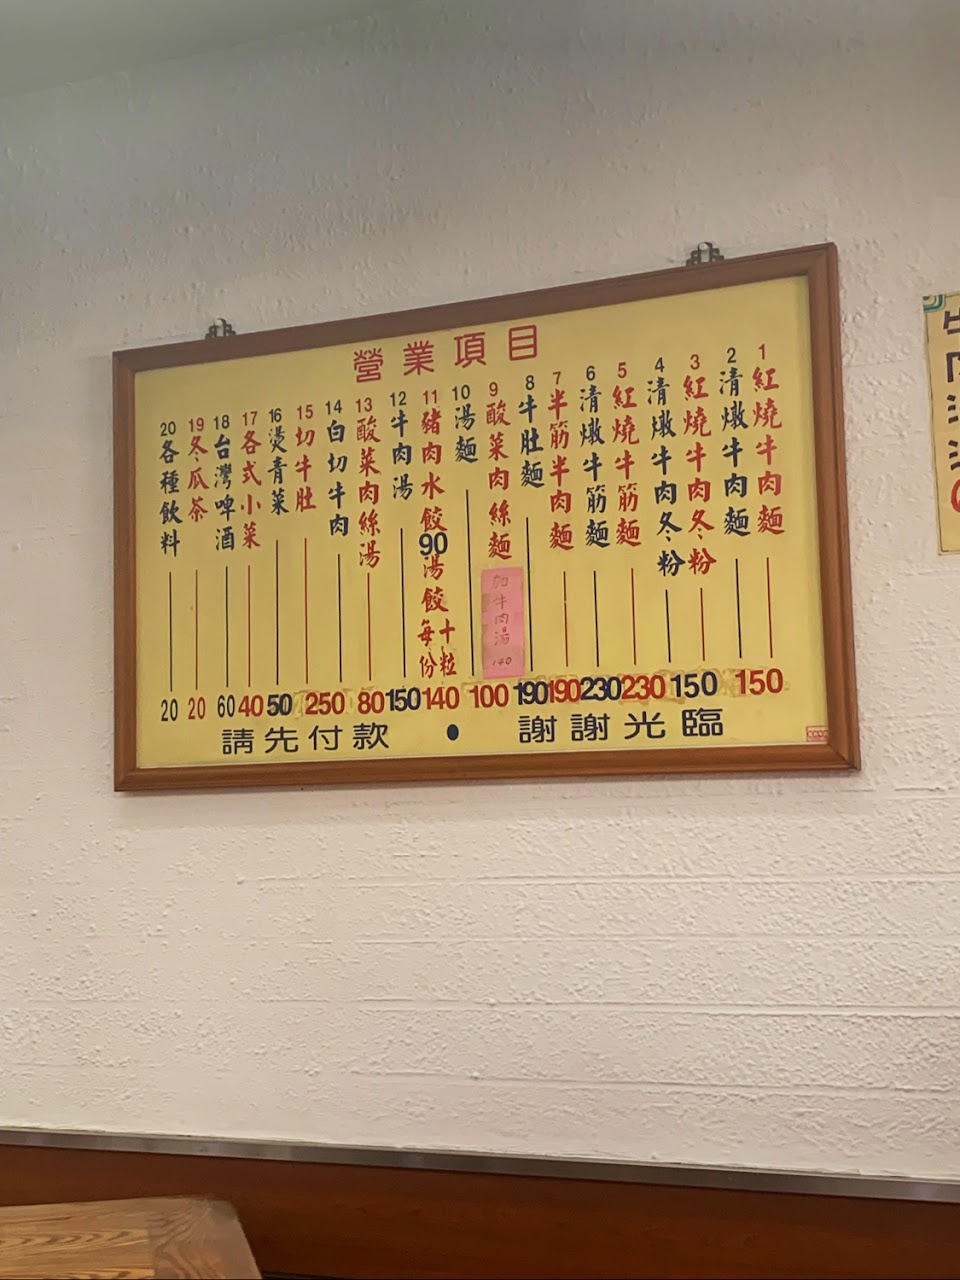 營業項目
1 紅燒牛肉麵
2 清燉牛肉麵
3 紅燒牛肉冬粉
4 清燉牛肉冬粉
5 紅燒牛筋麵
6 清燉牛筋麵
7 半筋半肉麵
8 牛肚麵
9 酸菜肉絲麵
加牛肉湯 140
10 湯麵
11 豬肉水餃 90 湯餃 每份十粒
12 牛肉湯
13 酸菜肉絲湯
14 白切牛肉
15 切牛肚
16 燙青菜
17 各式小菜
18 台灣啤酒
19 冬瓜茶
20 各種飲料
20 20 60 40 50 250 80 150 140 100 190 190 230 230 150 150
請先付款 • 謝謝光臨